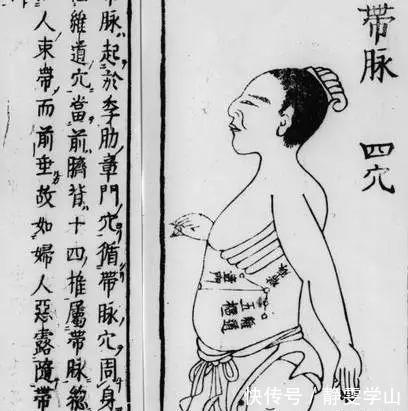 帶脉 四穴
帶脉
章門
五樞
維道
帶脉起於季肋章門穴循帶脉穴周身
維道穴當前臍背十四椎屬帶脉
人束帶而前垂故如婦人惡露隨帶
快传号 / 静雯学山